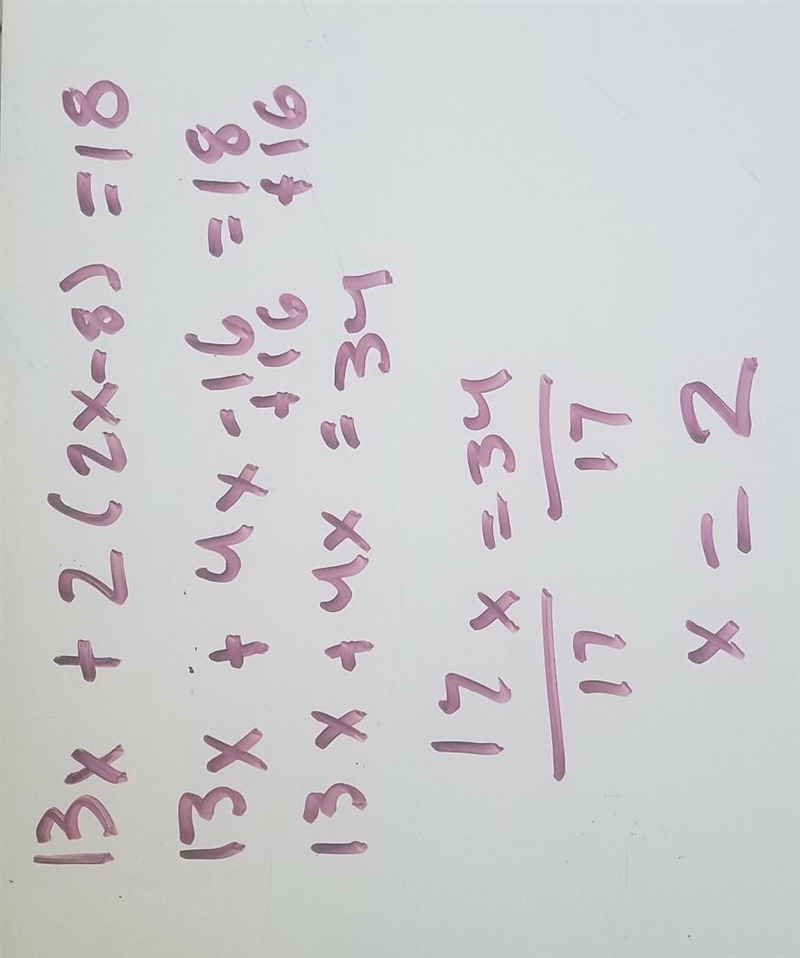 13x + 2(2x-8) = 18
13x + 4x -16 = 18
+16 +16
13x + 4x = 34
17x = 34
17 17
x = 2